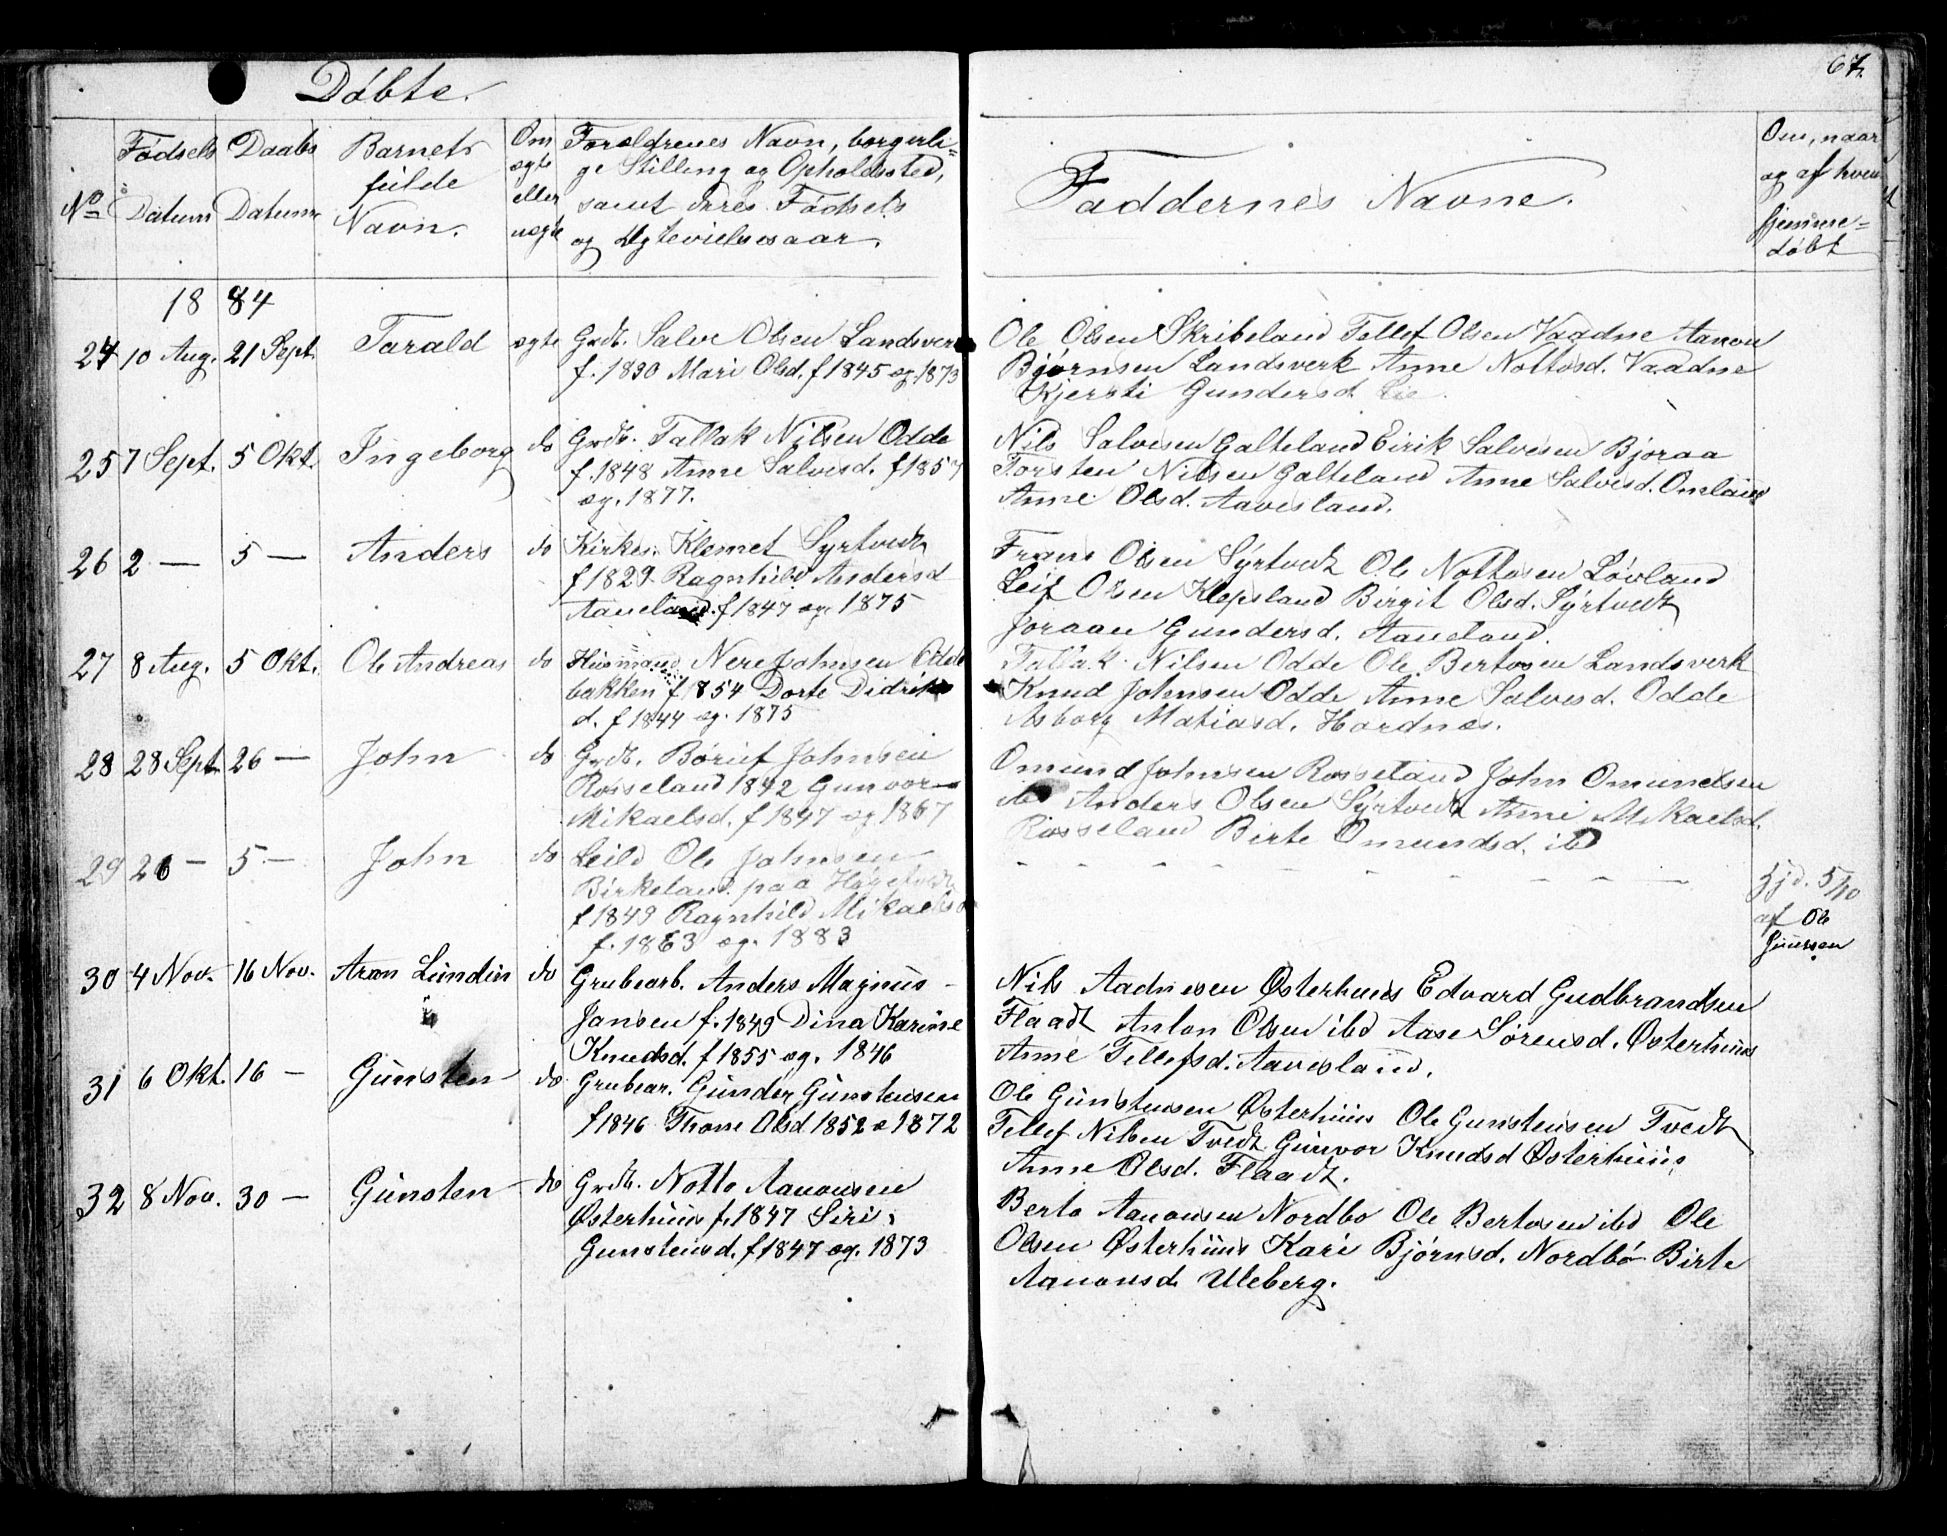 Døbte.
67.
No
Fødsels Datum
Daabs Datum
Barnets
fulde
Navn.
Om
ægte
eller
uægte
Forældrenes Navn, borgerli=
ge Stilling og Opholdssted,
samt deres Fødsels
og Ægtevielsesaar.
Faddernes Navne.
Om, naar
og af hvem
hjemme=
døbt
1884
24 10 Aug. 21 Sept. Tarald ægte Grdb. Salve Olsen Landsverk
f. 1830 Mari Olsd. f 1845 æg. 1873
Ole Olsen Skribeland Tellef Olsen Vaadne Aanon
Bjørnsen Landsverk Anne Nottosd. Vaadne
Kjersti Gundersd. Lie
25 7 Sept. 5 Okt. Ingeborg do Grdb. Tallak Nilsen Odde
f. 1848 Anne Salvesd. f 1857
æg. 1877.
Nils Salvesen Galteland Eirik Salvesen Bjoraa
Torsten Nilsen Galteland Anne Salvesd. Omland
Anne Olsd. Aavesland.
26 2 — 5 — Anders do Kirkes. Klemet Syrtvedt
f 1829 Ragnhild Andersd
Aaneland f 1847 æg. 1875
Frans Olsen Syrtvedt Ole Nottosen Løvland
Leif Olsen Klepsland Birgit Olsd. Syrtvedt
Joraan Gundersd. Aaneland.
27 8 Aug. 5 Okt. Ole Andreas do Husmand Nere Johnsen Odde
bakken f 1854 Dorte Didriks
d. f 1844 æg. 1875
Tallak Nilsen Odde Ole Bertosen Landsverk
Knud Johnsen Odde Anne Salvesd. Odde
Asborg Matiasd. Hordnes.
28 28 Sept 26 — John do Grdb. Børuf Johnsen
Rosseland 1842 Gunvor
Mikaelsd. f 1847 æg 1867
Omund Johnsen Rosseland John Omundsen
ibd Anders Olsen Syrtvedt Anne Mikaelsd.
Rosseland Birte Omundsd. ibd
29 26 — 5 — John do Leild Ole Johnsen
Birkeland paa Høgetvedt
f 1849 Ragnhild Mikaelsd
f. 1863 æg. 1883
hjd. 5/10
af Ole
Guussen
30 4 Nov. 16 Nov. Aron Lundin do Grubearb. Anders Magnus
Jansen f. 1849 Dina Karine
Knudsd. f 1855 æg. 1846
Nils Aadnesen Østerhuus Edvard Gudbrandsen
Flaadt Anton Olsen ibd Aase Sørensd. Østerhuus
Anne Tellefsd. Aavesland.
31 6 Okt. 16 — Gunsten do Grubear. Gunder Gunstensen
f 1846 Thone Olsd 1852 æ 1872
Ole Gunstensen Østerhuus Ole Gunstensen Tvedt
Tellef Nilsen Tvedt Gunvor Knudsd Østerhuus
Anne Olsd. Flaadt.
32 8 Nov. 30 — Gunsten do Grdb. Notto Aanonsen
Østerhuus f. 1847 Siri
Gunstensd. f 1847 æg. 1873
Berto Aanonsen Nordbø Ole Bertosen ibd Ole
Olsen Østerhuus Kari Bjørnsd. Nordbø Birte
Aanonsd Uleberg.